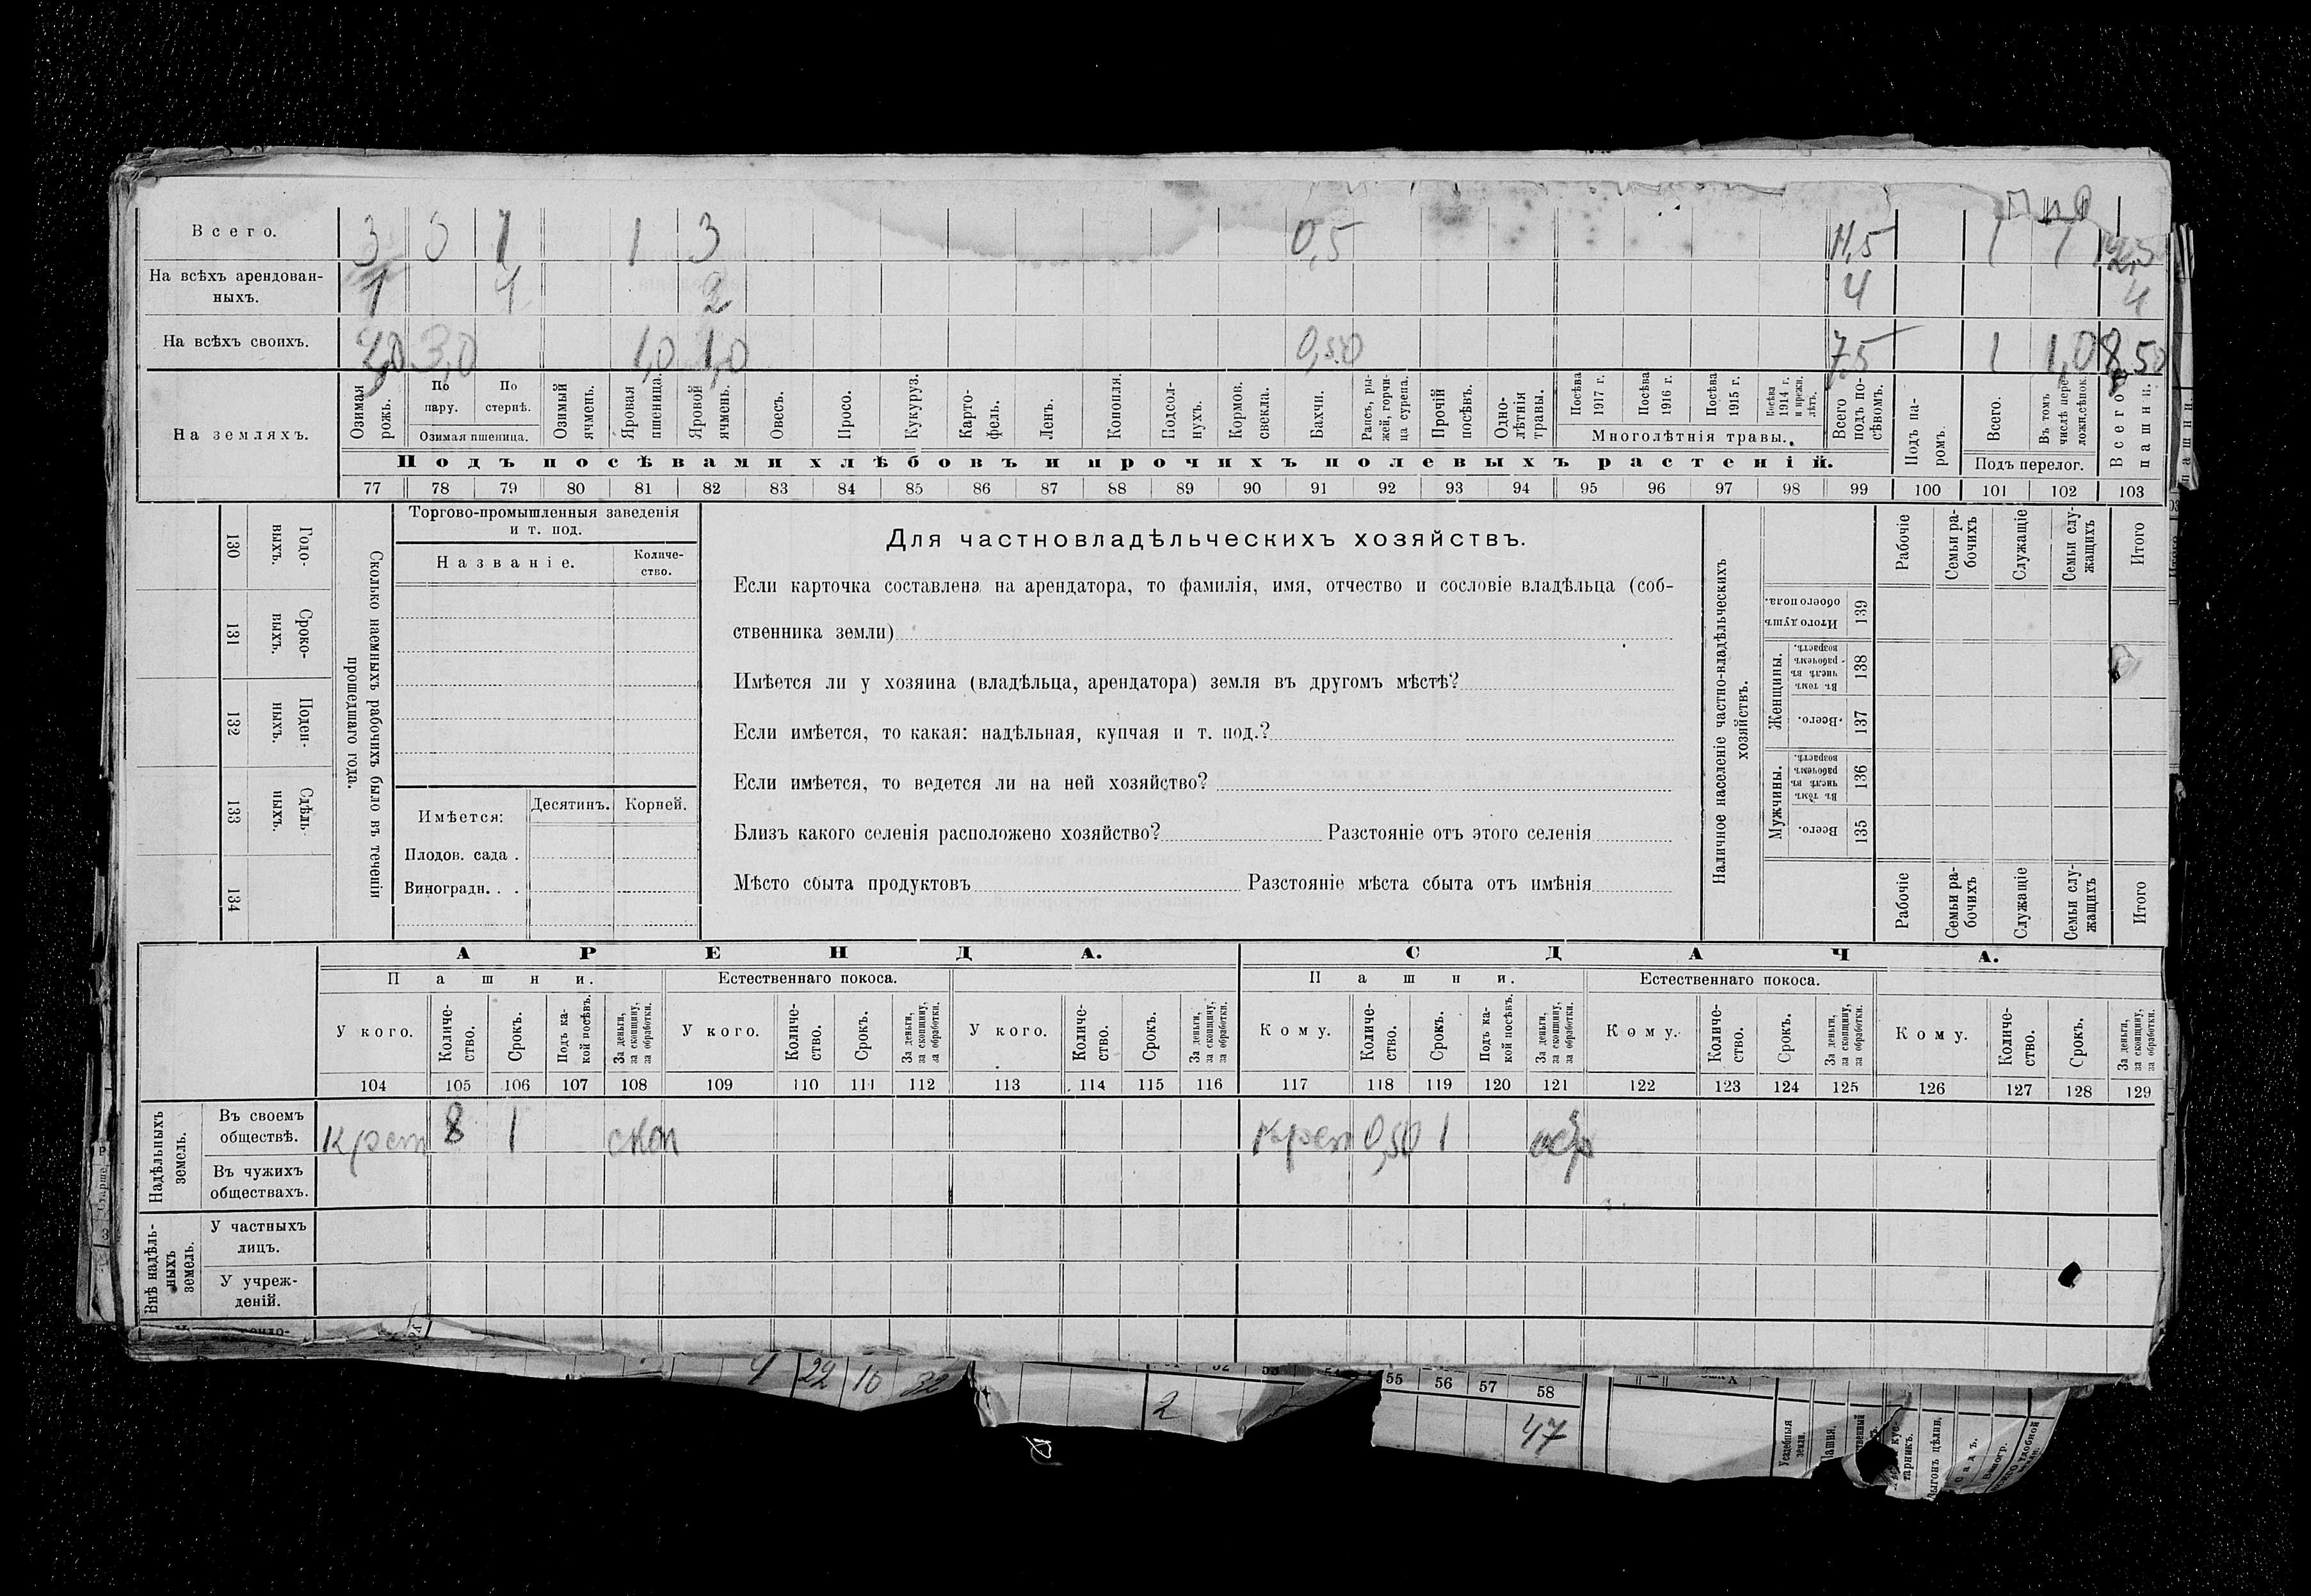 Всего. 3 3 1 1 3 0,5 11,5 1 1 12,5
На всѣхъ арендован-
ныхъ. 1 1 2 4 4
На всѣхъ своихъ. 2,0 3,0 1,0 1,0 0,50 7,5 1 1,0 8,50
На земляхъ.
Озимая рожь.
По пару.
По стернѣ.
Озимая пшеница.
Озимый ячмень.
Яровая пшеница.
Яровой ячмень.
Овесъ.
Просо.
Кукуруз.
Карто-
фель.
Ленъ.
Конопля.
Подсол-
нухъ.
Кормов. свекла.
Бахчи.
Рапсъ, ры-
жей, горчи-
ца сурепа.
Прочій посѣвъ.
Одно-
лѣтнія травы.
Посѣва 1917 г.
Посѣва 1916 г.
Посѣва 1915 г.
Посѣва 1914 г. и прежн. лѣтъ.
Многолѣтнія травы.
Всего подъ по-
сѣвомъ.
Подъ па-
ромъ.
Всего.
Въ томъ числѣ пере-
ложн. сѣнок.
Подъ перелог.
Всего пашни.
Подъ посѣвами хлѣбовъ и прочихъ полевыхъ растеній.
77 78 79 80 81 82 83 84 85 86 87 88 89 90 91 92 93 94 95 96 97 98 99 100 101 102 103
130 Годо-
выхъ.
131 Сроко-
выхъ.
132 Поден-
ныхъ.
133 Сдѣль-
ныхъ.
134
Сколько наемныхъ рабочихъ было въ теченіи
прошедшаго года.
Торгово-промышленныя заведенія
и т. под.
Названіе.
Количе-
ство.
Имѣется: Десятинъ. Корней.
Плодов. сада .
Виноградн. . .
Для частновладѣльческихъ хозяйствъ.
Если карточка составлена на арендатора, то фамилія, имя, отчество и сословіе владѣльца (соб-
ственника земли)
Имѣется ли у хозяина (владѣльца, арендатора) земля въ другомъ мѣстѣ?
Если имѣется, то какая: надѣльная, купчая и т. под.?
Если имѣется, то ведется ли на ней хозяйство?
Близъ какого селенія расположено хозяйство? Разстояніе отъ этого селенія
Мѣсто сбыта продуктовъ Разстояніе мѣста сбыта отъ имѣнія
Наличное населеніе частно-владѣльческихъ
хозяйствъ.
Рабочіе
Семьи ра-
бочихъ
Служащіе
Семьи слу-
жащихъ
Итого
Итого душъ обоего пола. 139
Женщины.
Въ томъ числѣ въ рабочемъ возрастѣ. 138
Всего. 137
Мужчины.
Въ томъ числѣ въ рабочемъ возрастѣ. 136
Всего. 135
Рабочіе
Семьи ра-
бочихъ
Служащіе
Семьи слу-
жащихъ
Итого
АРЕНДА. СДАЧА.
Пашни. Естественнаго покоса. Пашни. Естественнаго покоса.
У кого.
Количе-
ство.
Срокъ.
Подъ ка-
кой посѣвъ.
За деньги, за скопщину, за обработки.
У кого.
Количе-
ство.
Срокъ.
За деньги, за скопщину, за обработки.
У кого.
Количе-
ство.
Срокъ.
За деньги, за скопщину, за обработки.
Кому.
Количе-
ство.
Срокъ.
Подъ ка-
кой посѣвъ.
За деньги, за скопщину, за обработки.
Кому.
Количе-
ство.
Срокъ.
За деньги, за скопщину, за обработки.
Кому.
Количе-
ство.
Срокъ.
За деньги, за скопщину, за обработки.
104 105 106 107 108 109 110 111 112 113 114 115 116 117 118 119 120 121 122 123 124 125 126 127 128 129
Надѣльныхъ земель.
Въ своемъ
обществѣ. Крест 8 1 скоп Крест 0,50 1
Въ чужихъ
обществахъ.
Внѣ надѣль-
ныхъ земель.
У частныхъ
лицъ.
У учреж-
деній.
4 22 10 32
2
55 56 57 58
47
Усадебныя земли.
тарникъ.
Выгонъ цѣлин.
Садъ.
Виногр.